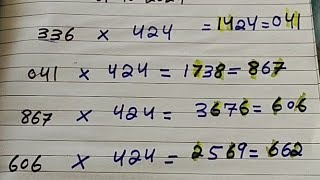 336 × 424 = 1424 = 041
041 × 424 = 1738 = 867
867 × 424 = 3676 = 606
606 × 424 = 2569 = 662